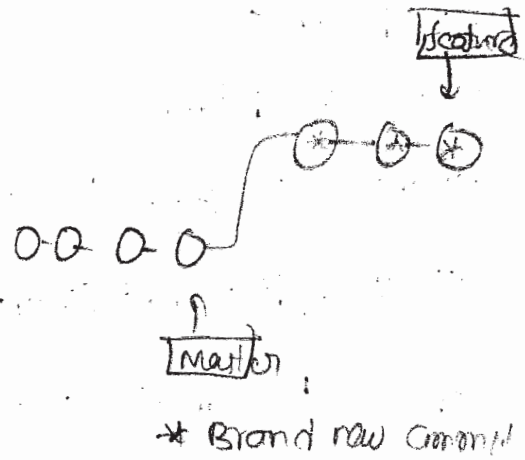 feature
Master
* Brand new commit